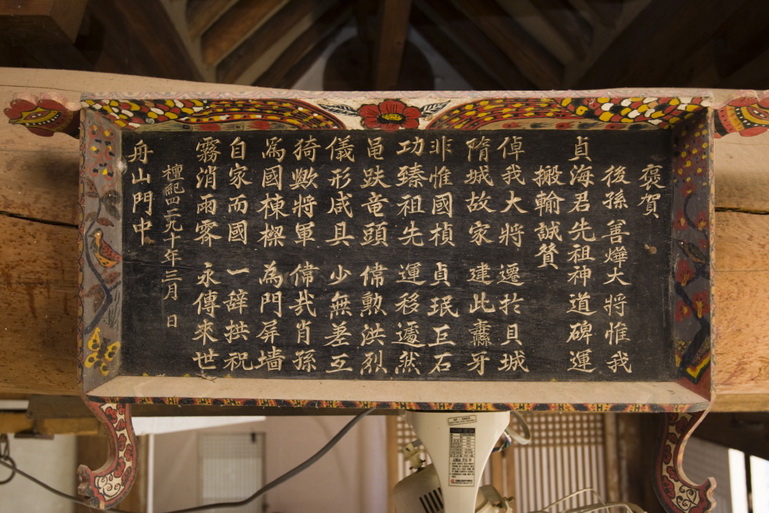 褒賀
後孫善燁大將惟我
貞海君先祖神道碑運
搬輸誠賛
倬我大將 還於貝城
隋城故家 建此纛牙
非惟國楨 貞珉巨石
功臻祖先 運移遽然
黽趺竜頭 偹勲洪烈
儀形咸具 少無差互
猗歟將軍 偹哉肖孫
爲國棟樑 為門屏墙
自家而國 一辞拱祝
霧消雨霽 永傳來世
檀紀四二九十年三月 日
舟山門中